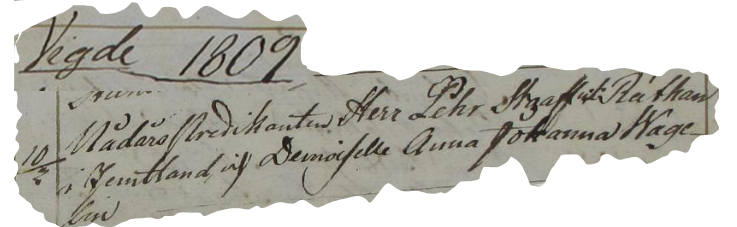 Vigde 1809
10/3 Nådårs Predikanten Herr Pehr Staaff i Räthan
i Jemtland, och Demoiselle Anna Johanna Wage
lin